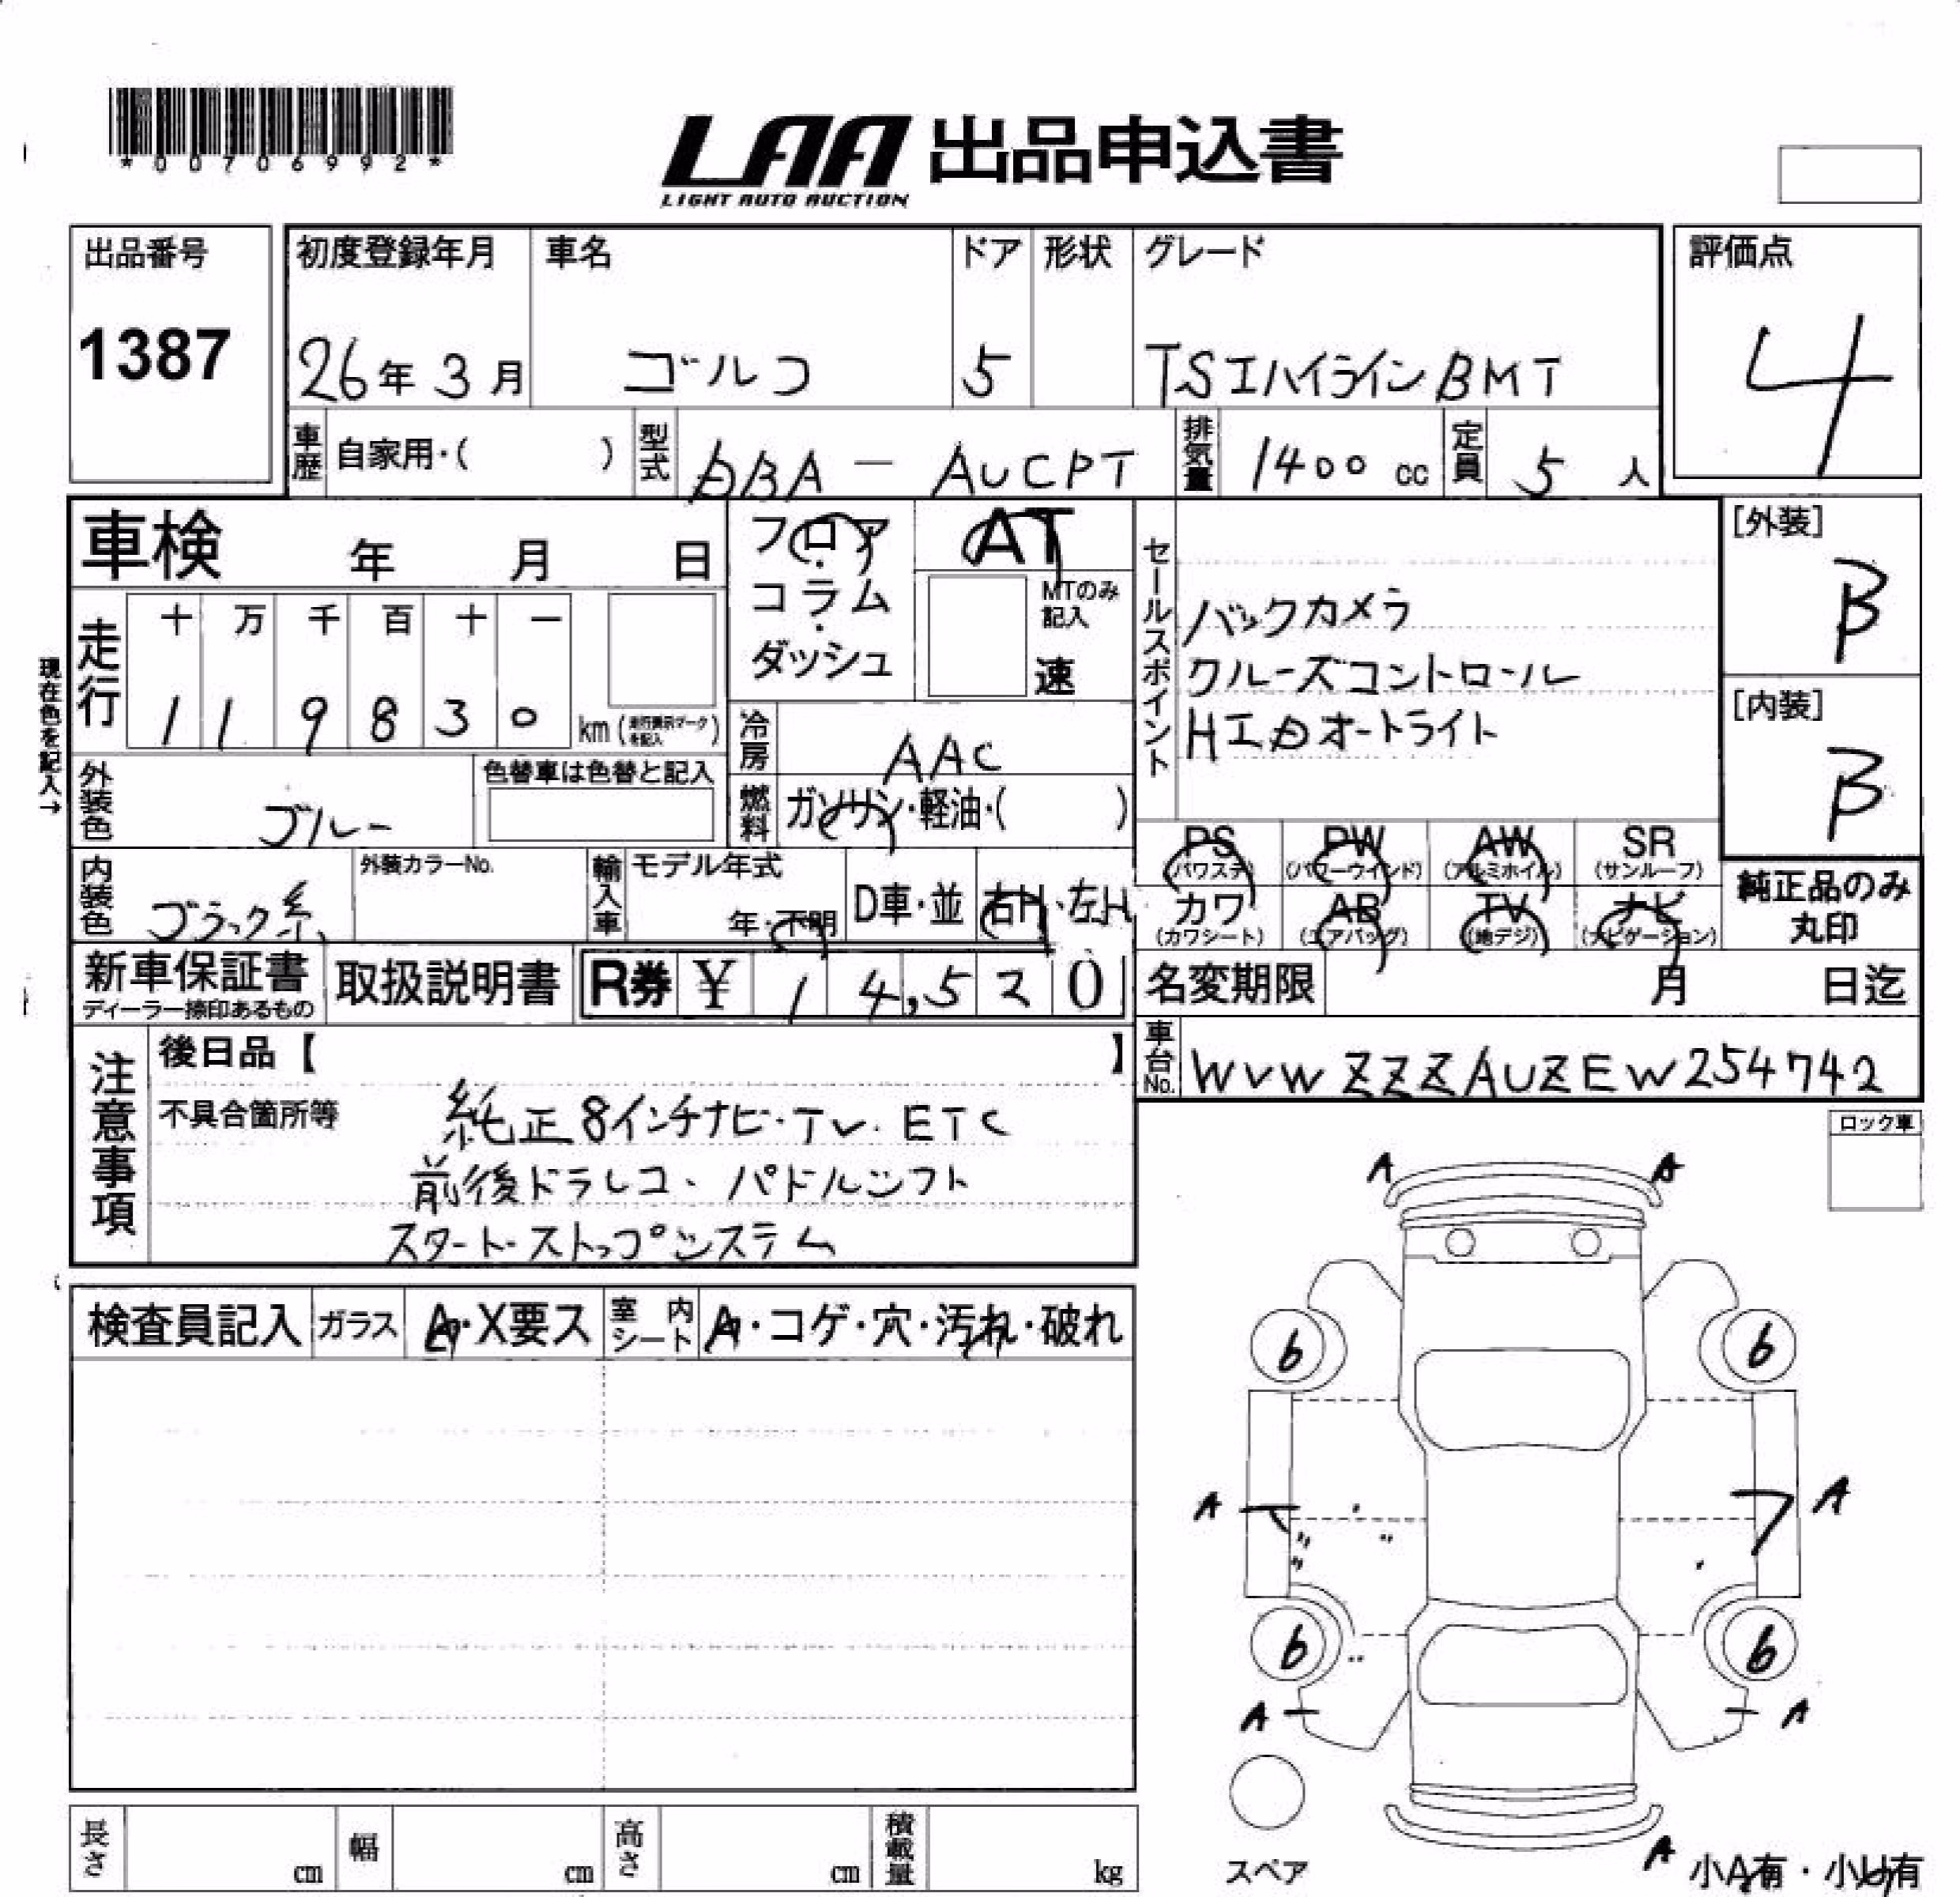 *00706992*
LAA 出品申込書
LIGHT AUTO AUCTION
出品番号
1387
初度登録年月 車名 ドア 形状 グレード
26年 3月 ゴルフ 5 TSIハイラインBMT
評価点
4
車歴 自家用・( ) 型式 DBA - AUCPT 排気量 1400 cc 定員 5 人
車検 年 月 日
フロア・コラム・ダッシュ
AT
MTのみ記入
速
走行 十 万 千 百 十 一
1 1 9 8 3 0 km (走行表示マークを記入)
現在色を記入→
冷房 AAC
燃料 ガソリン・軽油・( )
外装色 ブルー
色替車は色替と記入
内装色 ブラック系
外装カラーNo.
輸入車 モデル年式
年・不明 D車・並 右H・左H
セールスポイント
バックカメラ
クルーズコントロール
HIDオートライト
[外装]
B
[内装]
B
PS (パワステ) PW (パワーウインド) AW (アルミホイル) SR (サンルーフ)
カワ (カワシート) AB (エアバッグ) TV (地デジ) ナビ (ナビゲーション)
純正品のみ
丸印
新車保証書
ディーラー捺印あるもの
取扱説明書
R券 ¥ 14,520
名変期限 月 日迄
車台No. WVWZZZAUZEW254742
注意事項
後日品【 】
不具合箇所等
純正8インチナビ・TV・ETC
前後ドラレコ、パドルシフト
スタート・ストップシステム
ロック車
検査員記入 ガラス A・X要ス 室内シート A・コゲ・穴・汚れ・破れ
A A
6 6
A A
6 6
A A
スペア
A
小A有・小U有
長さ cm 幅 cm 高さ cm 積載量 kg